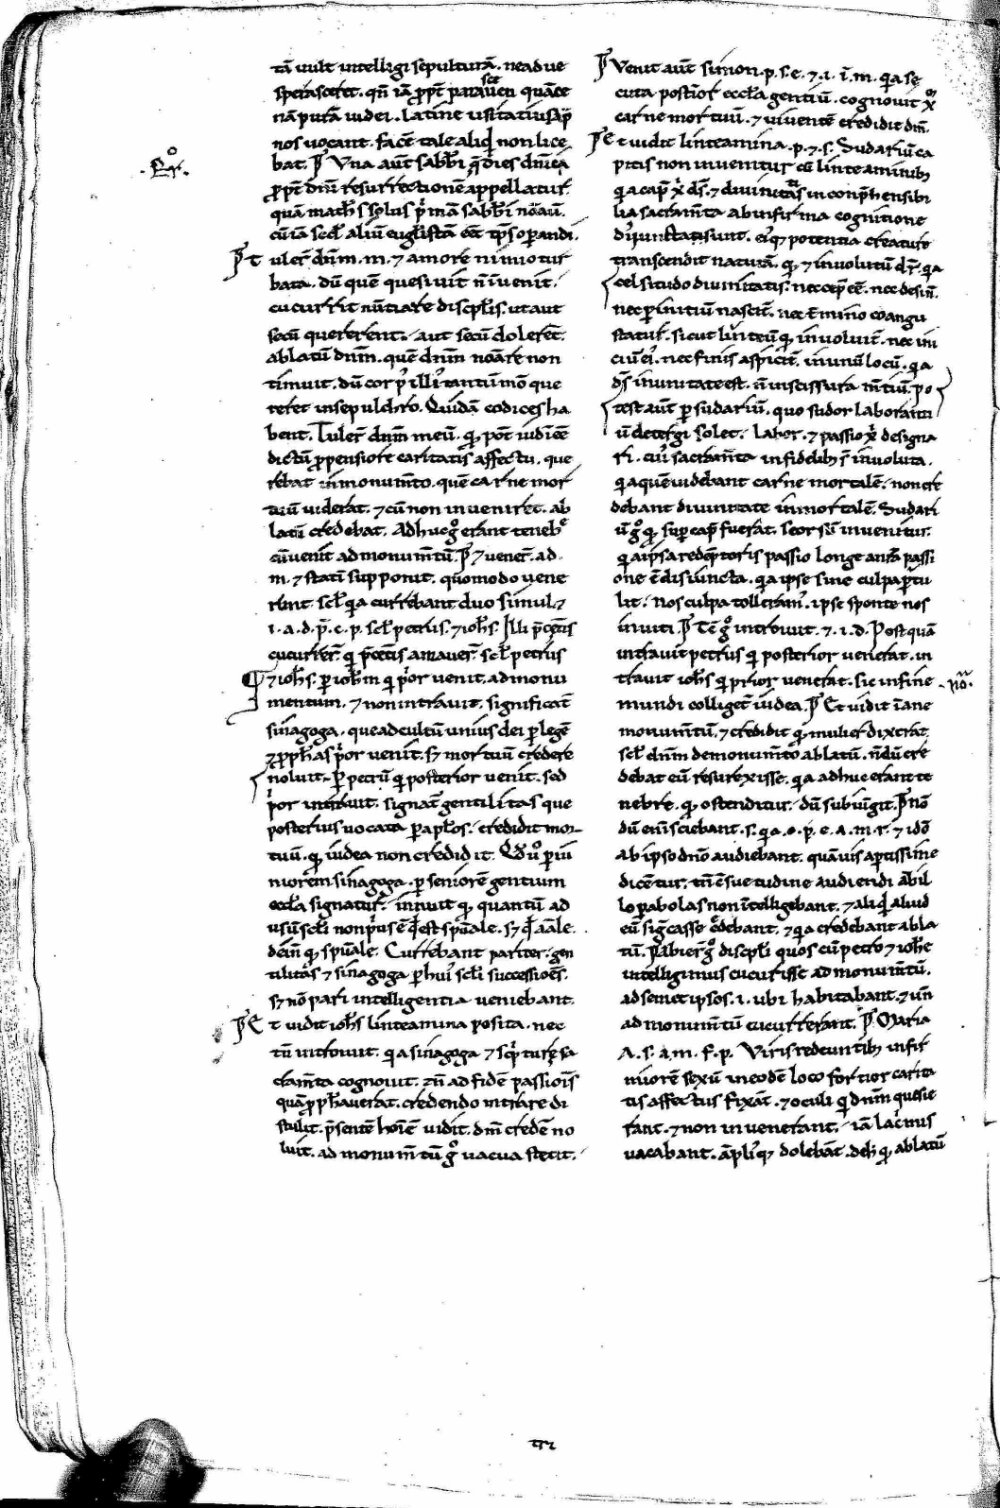 tā uult intelligi sepulturā. ne ad ue
sperascẽt. qñ iā ꝓpt̄ parasceuen quā ce
nā purā iudei. latine usitatius apđ
nos uocant. facẽ tale aliqđ non lice
bat. P̄ Vna aut̄ sabb̄i q̄ dies dn̄ica
ꝓpt̄ dn̄i resurrectionē appellatur
quā math̄s solus p̄mā sabb̄i noīaū.
cū iā scđ aliū eugl̄istā eēt tp̄s operandi.
P̄ Tuler̄ dn̄m. m. ⁊ amore nimio tur
bata. dū quē quesiuit n̄ īuenit.
cucurrit nūtiare discipl̄is. ut aut
secū quererent. aut secū dolerēt.
ablatū dn̄m. quē dn̄m noīare non
timuit. dū corp̄ illi᾽ tantūmō que
reret in sepulchro. Quidā codices ha
bent. Tuler̄ dn̄m meū. qđ pōt uidi eē
dictū ꝓpensiore caritatis affectu. que
rebat in monum̄to. quē carne mor
tuū uiderat. ⁊ cū non inueniret. ab
latū credebat. Adhuc gͦ erant tenebͤ
cū uenit ad monum̄tū. P̄ ⁊ uener̄. ad.
m. ⁊ statū supponit. quomodo uene
rint. scl̄ qa currebant duo simul ⁊
.i. a. d. p̄. c. p. scl̄ petrus. ⁊ ioh̄s. Illi p̄ cet̄is
cucurrer̄. qͥ p̄ cet̄is amauer̄. scl̄ petrus
⁊ ioh̄s. P ioh̄m qͥ pͥor uenit. ad monu
mentum. ⁊ non intrauit. significat̄
sinagoga. que ad cultū unius dei ꝑ legē
⁊ ꝓph̄as pͥor uenit. sʒ mortuū credere
noluit. Per petrū qͥ posterior uenit. sed
pͥor intrauit. signat̄ gentilitas que
posterius uocata ꝑ apl̄os. credidit mor-
tuū. qđ iudea non credidit. Qđ uͦ ꝑ iu
niorē sinagoga. ꝑ seniorē gentium
eccl̄a signatur. innuit qđ quantū ad
usū scl̄i non pͥus ē qđ est spūale. sʒ qđ aīale.
dein̄ qđ spūale. Currebant pariter. gen
tilitas ⁊ sinagoga ꝑ hui᾽ scl̄i successiones.
sʒ nō pari intelligentia ueniebant.
P̄ Et uidit ioh̄s linteamina posita. nec
tn̄ introiuit. qa sinagoga ⁊ scͥpture sa
cram̄ta cognouit. ⁊ n̄ ad fidē passionis
quā ꝓph̄auerat. credendo intrare di
stulit. p̄sentē hoīem uidit. dm̄ credē no
luit. ad monum̄tū gͦ uacua stetit.
P̄ Venit aut̄ simon. p. s. e. ⁊. i. ī. m. qa se
cuta posterior eccl̄a gentiū. cognouit xͫ
carne mortuū. ⁊ uiuentē credidit dm̄.
P̄ Et uidit linteamina. p. ⁊ s. Sudariū ca
pitis non inuenitur cū linteaminibʒ
qa cap̄ x̄ ds̄. ⁊ diuinitatis inconp̄hensibi
lia sacram̄ta ab infirma cognitione
disiunctas̄unt. ei᾽qʒ potentia creature
transcendit naturā. qđ ⁊ inuolutū dr̄. qa
celsitudo diuinitatis. nec cep̄ eē. nec desin̄.
nec ꝑ initiū nascit̄. nec t̄mino coangu
statur. sicut linteū qđ inuoluit̄. nec ini
ciū ei᾽. nec finis aspicit̄. in unū locū. qa
ds̄ in unitate est. n̄ in scissura m̄tiū. po
test aut̄ ꝑ sudariū. quo sudor laboranti
ū detergi solet. labor. ⁊ passio x̄ designa
ri. cui᾽ sacram̄ta infidelibʒ s̄ inuoluta.
qa quē uidebant carne mortalē. non cre
debant diuinitate inmortalē. Sudari
ū gͦ qđ sup cap̄ fuerat. seorsū inuenitur.
qa ip̄sa redēptoris passio longe a nr̄a passi
one ē disiuncta. qa ipse sine culpa ꝑtu
lit. nos culpa tolleram᾽. ipse sponte nos
inuiti. P̄ Tē gͦ introiuit. ⁊. i. d. Postquā
intrauit petrus qͥ posterior uenerat. in
trauit ioh̄s qͥ prior uenerat. sic in fine
mundi colliget̄ iudea. P̄ Et uidit inane
monum̄tū. ⁊ credidit qđ mulier dixerat.
scl̄ dn̄m de monum̄to ablatū. n̄dū cre
debat eū resurexisse. qa adhuc erant te
nebre. qđ ostenditur. dū subiūgit. P̄ nō
dū enī sciebant. s. qa. o. p. e. a. m. r. ⁊ idō
ab ipso dn̄o audiebant. quāuis aꝑtissime
dicēt̄ur. tn̄ ēsuetudine audiendi ab il
lo ꝑabolas non ītelligebant. ⁊ aliqđ aliud
eū sig̃casse c̄debant. ⁊ qa credebant abla
tū. P̄ Abier̄ gͦ discipl̄i quos cū petro ⁊ ioh̄e
intelligimus cucurisse ad monum̄tū.
ad semet ipsos. .i. ubi habitabant. ⁊ un̄
ad monum̄tū cucurrerant. P̄ Maria
A. s. a. m. f. p. Viris redeuntibʒ infir
miorē sexū in eodē loco fortior carita
tis affectus fixāt. ⁊ oculi qͥ dn̄m quesie
rant. ⁊ non inuenerant. iā lacͥmis
uacabant. ampli᾽qʒ dolebāt. de h̄ qđ ablatū